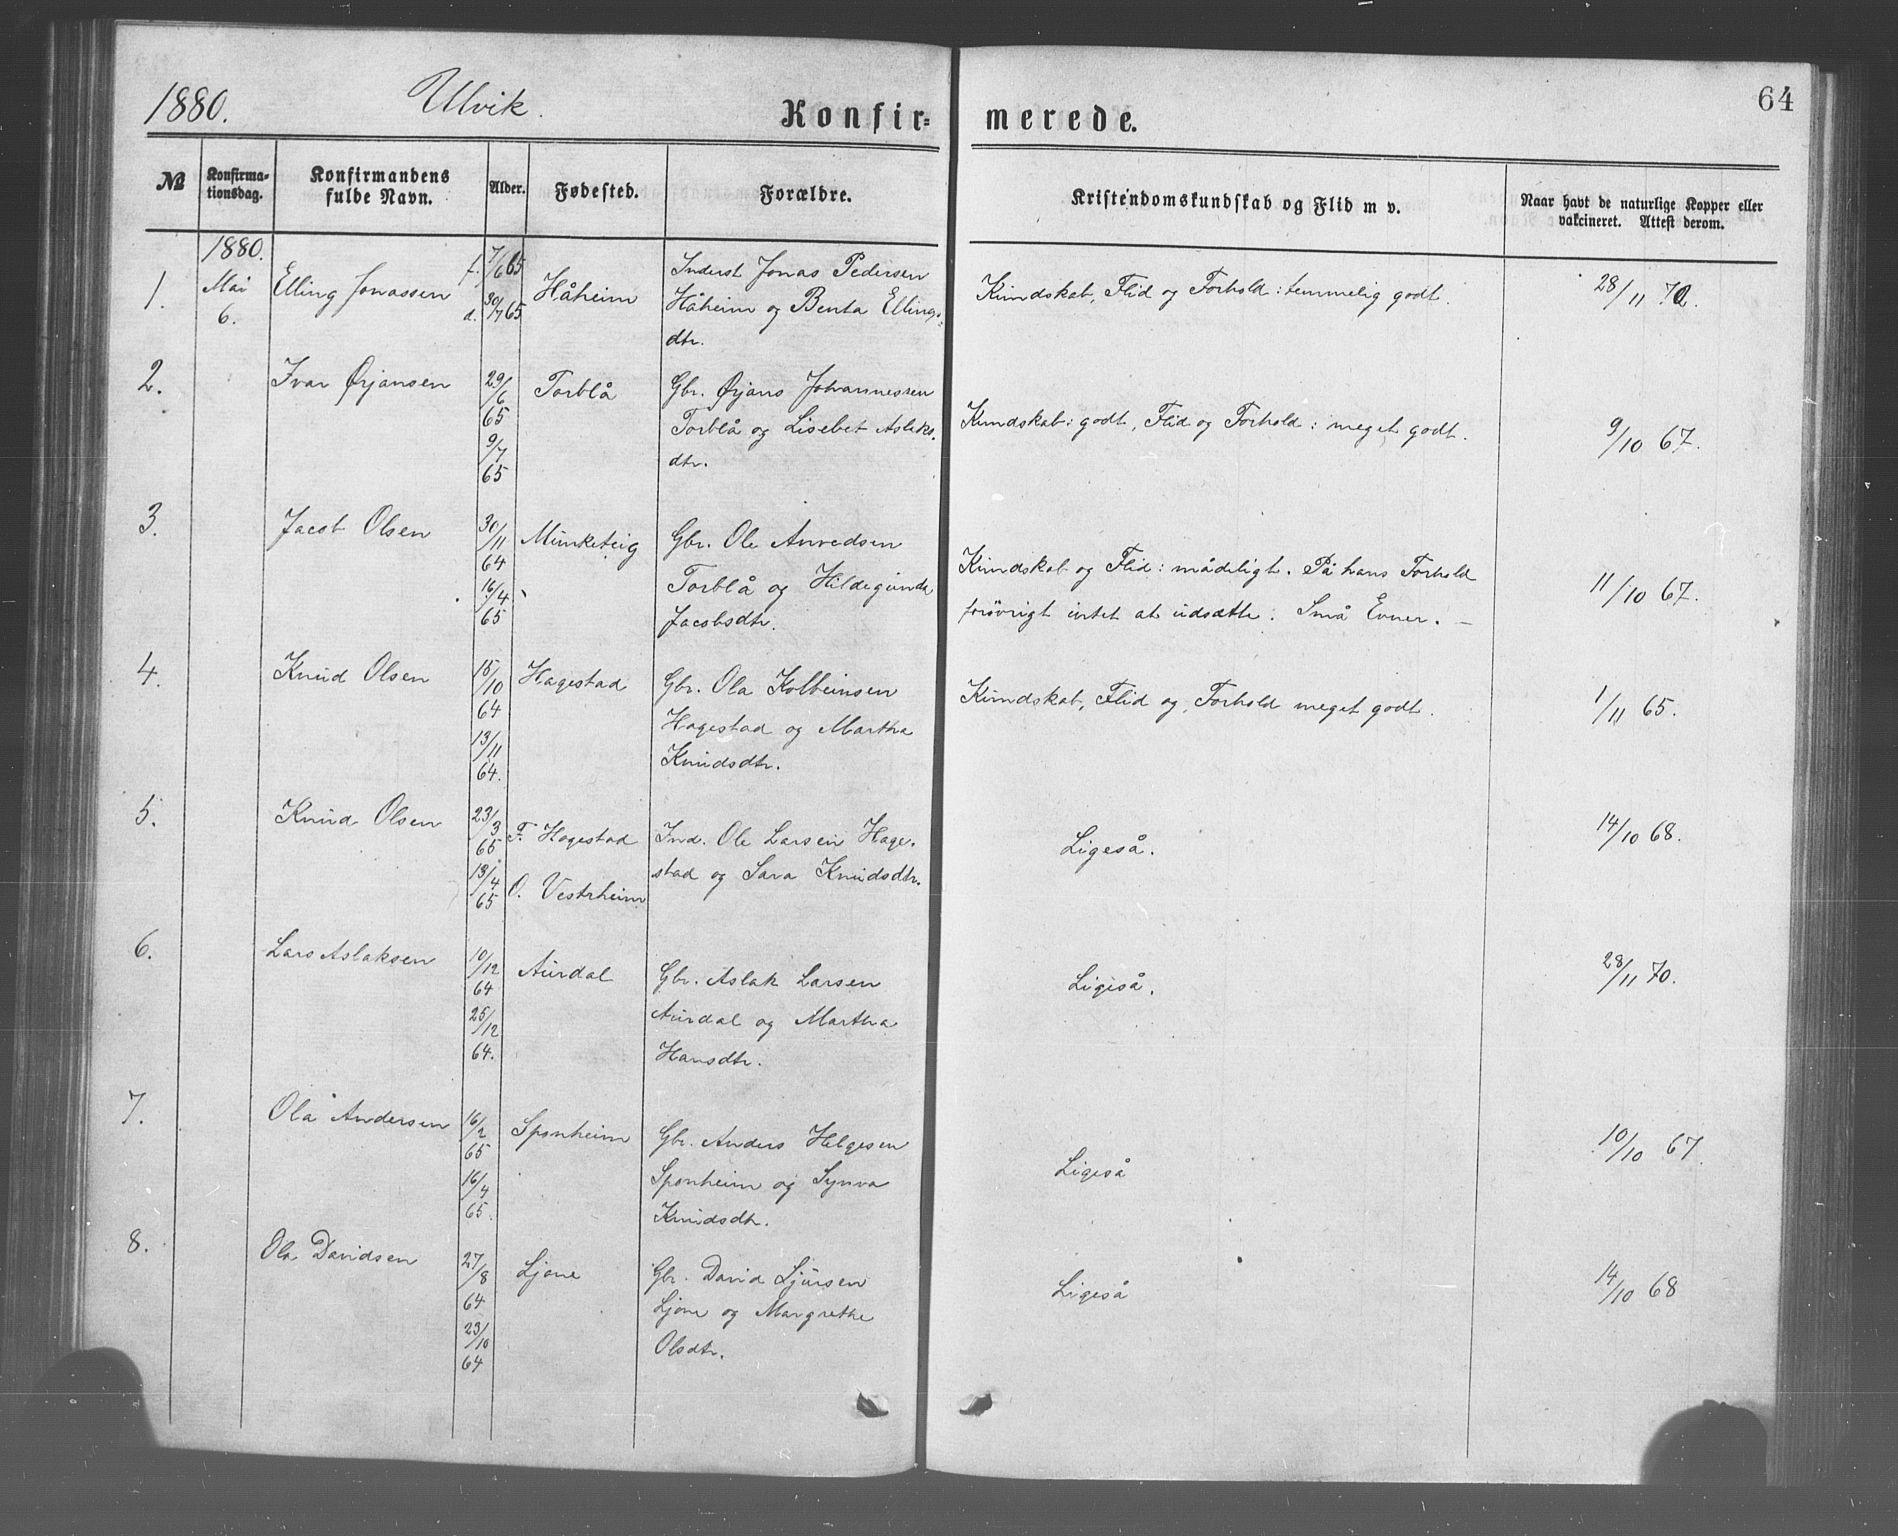 1880. Ulvik. Konfir-
merede. 64
№ Konfirma-
tionsdag. Konfirmandens
fulde Navn. Alder. Fødested. Forældre. Kristendomskundskab og Flid m v. Naar havt de naturlige Kopper eller
vakcineret. Attest derom.
1880.
1. Mai
6. Elling Jonassen f. 7/6 65
d. 30/7 65 Håheim Inderst Jonas Pedersen
Håheim og Benta Ellings-
dtr. Kundskab, Flid og Forhold: temmelig godt. 28/11 72.
2. Ivar Ørjansen 29/6
65
9/7
65 Torblå Gbr. Ørjans Johannessen
Torblå og Lisebet Aslaks-
dtr. Kundskab: godt, Flid og Forhold: meget godt. 9/10 67.
3. Jacob Olsen 30/11
64
16/4
65 Munketeig Gbr. Ole Anvedsen
Torblå og Hildegunda
Jacobsdtr. Kundskab og Flid: mådeligt. På hans Forhold
forövrigt intet at udsætte. Små Evner. – 11/10 67.
4. Knud Olsen 15/10
64
13/11
64. Hagestad Gbr. Ola Kolbeinsen
Hagestad og Martha
Knudsdtr. Kundskab, Flid og Forhold meget godt. 1/11 65.
5. Knud Olsen 23/3
65
13/4
65 F. Hagestad
O. Vestrheim Ind. Ole Larsen Hage-
stad og Sara Knudsdtr. Ligeså. 14/10 68.
6. Lars Aslaksen 10/12
64
25/12
64. Aurdal Gbr. Aslak Larsen
Aurdal og Martha
Hansdtr. Ligeså. 28/11 70.
7. Ola Andersen 16/2
65
16/4
65. Sponheim Gbr. Anders Helgesen
Sponheim og Synva
Knudsdtr. Ligeså 10/10 67.
8. Ola Davidsen 27/8
64
23/10
64 Ljone Gbr. David Ljursen
Ljone og Margrethe
Olsdtr. Ligeså 14/10 68